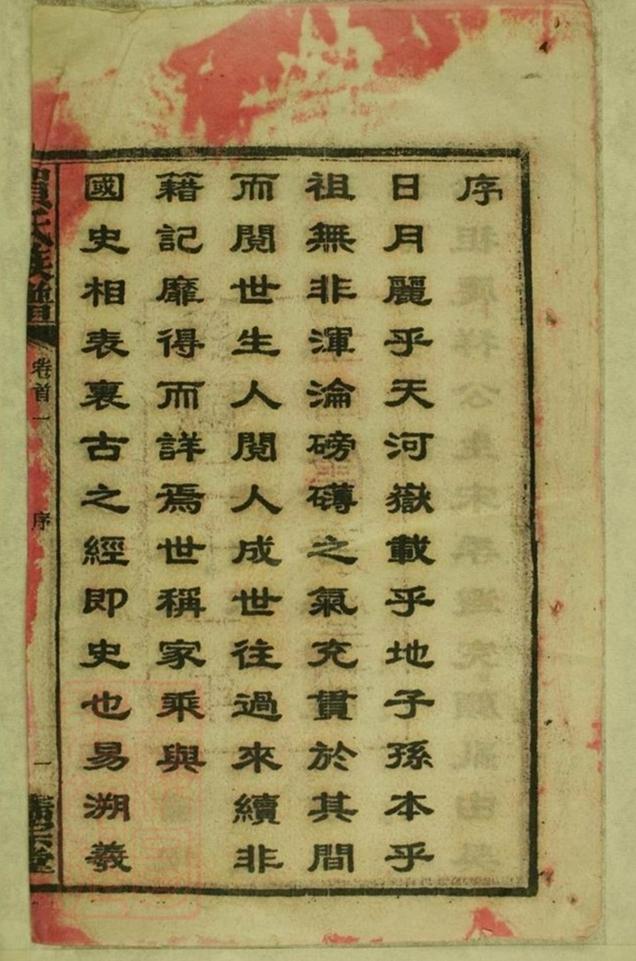 序
日月麗乎天河嶽載乎地子孫本乎
祖無非渾淪磅礴之氣充貫於其間
而閱世生人閱人成世往過來續非
籍記靡得而詳焉世稱家乘與
國史相表裏古之經即史也易溯羲
氏族譜
卷首一
序
一
堂